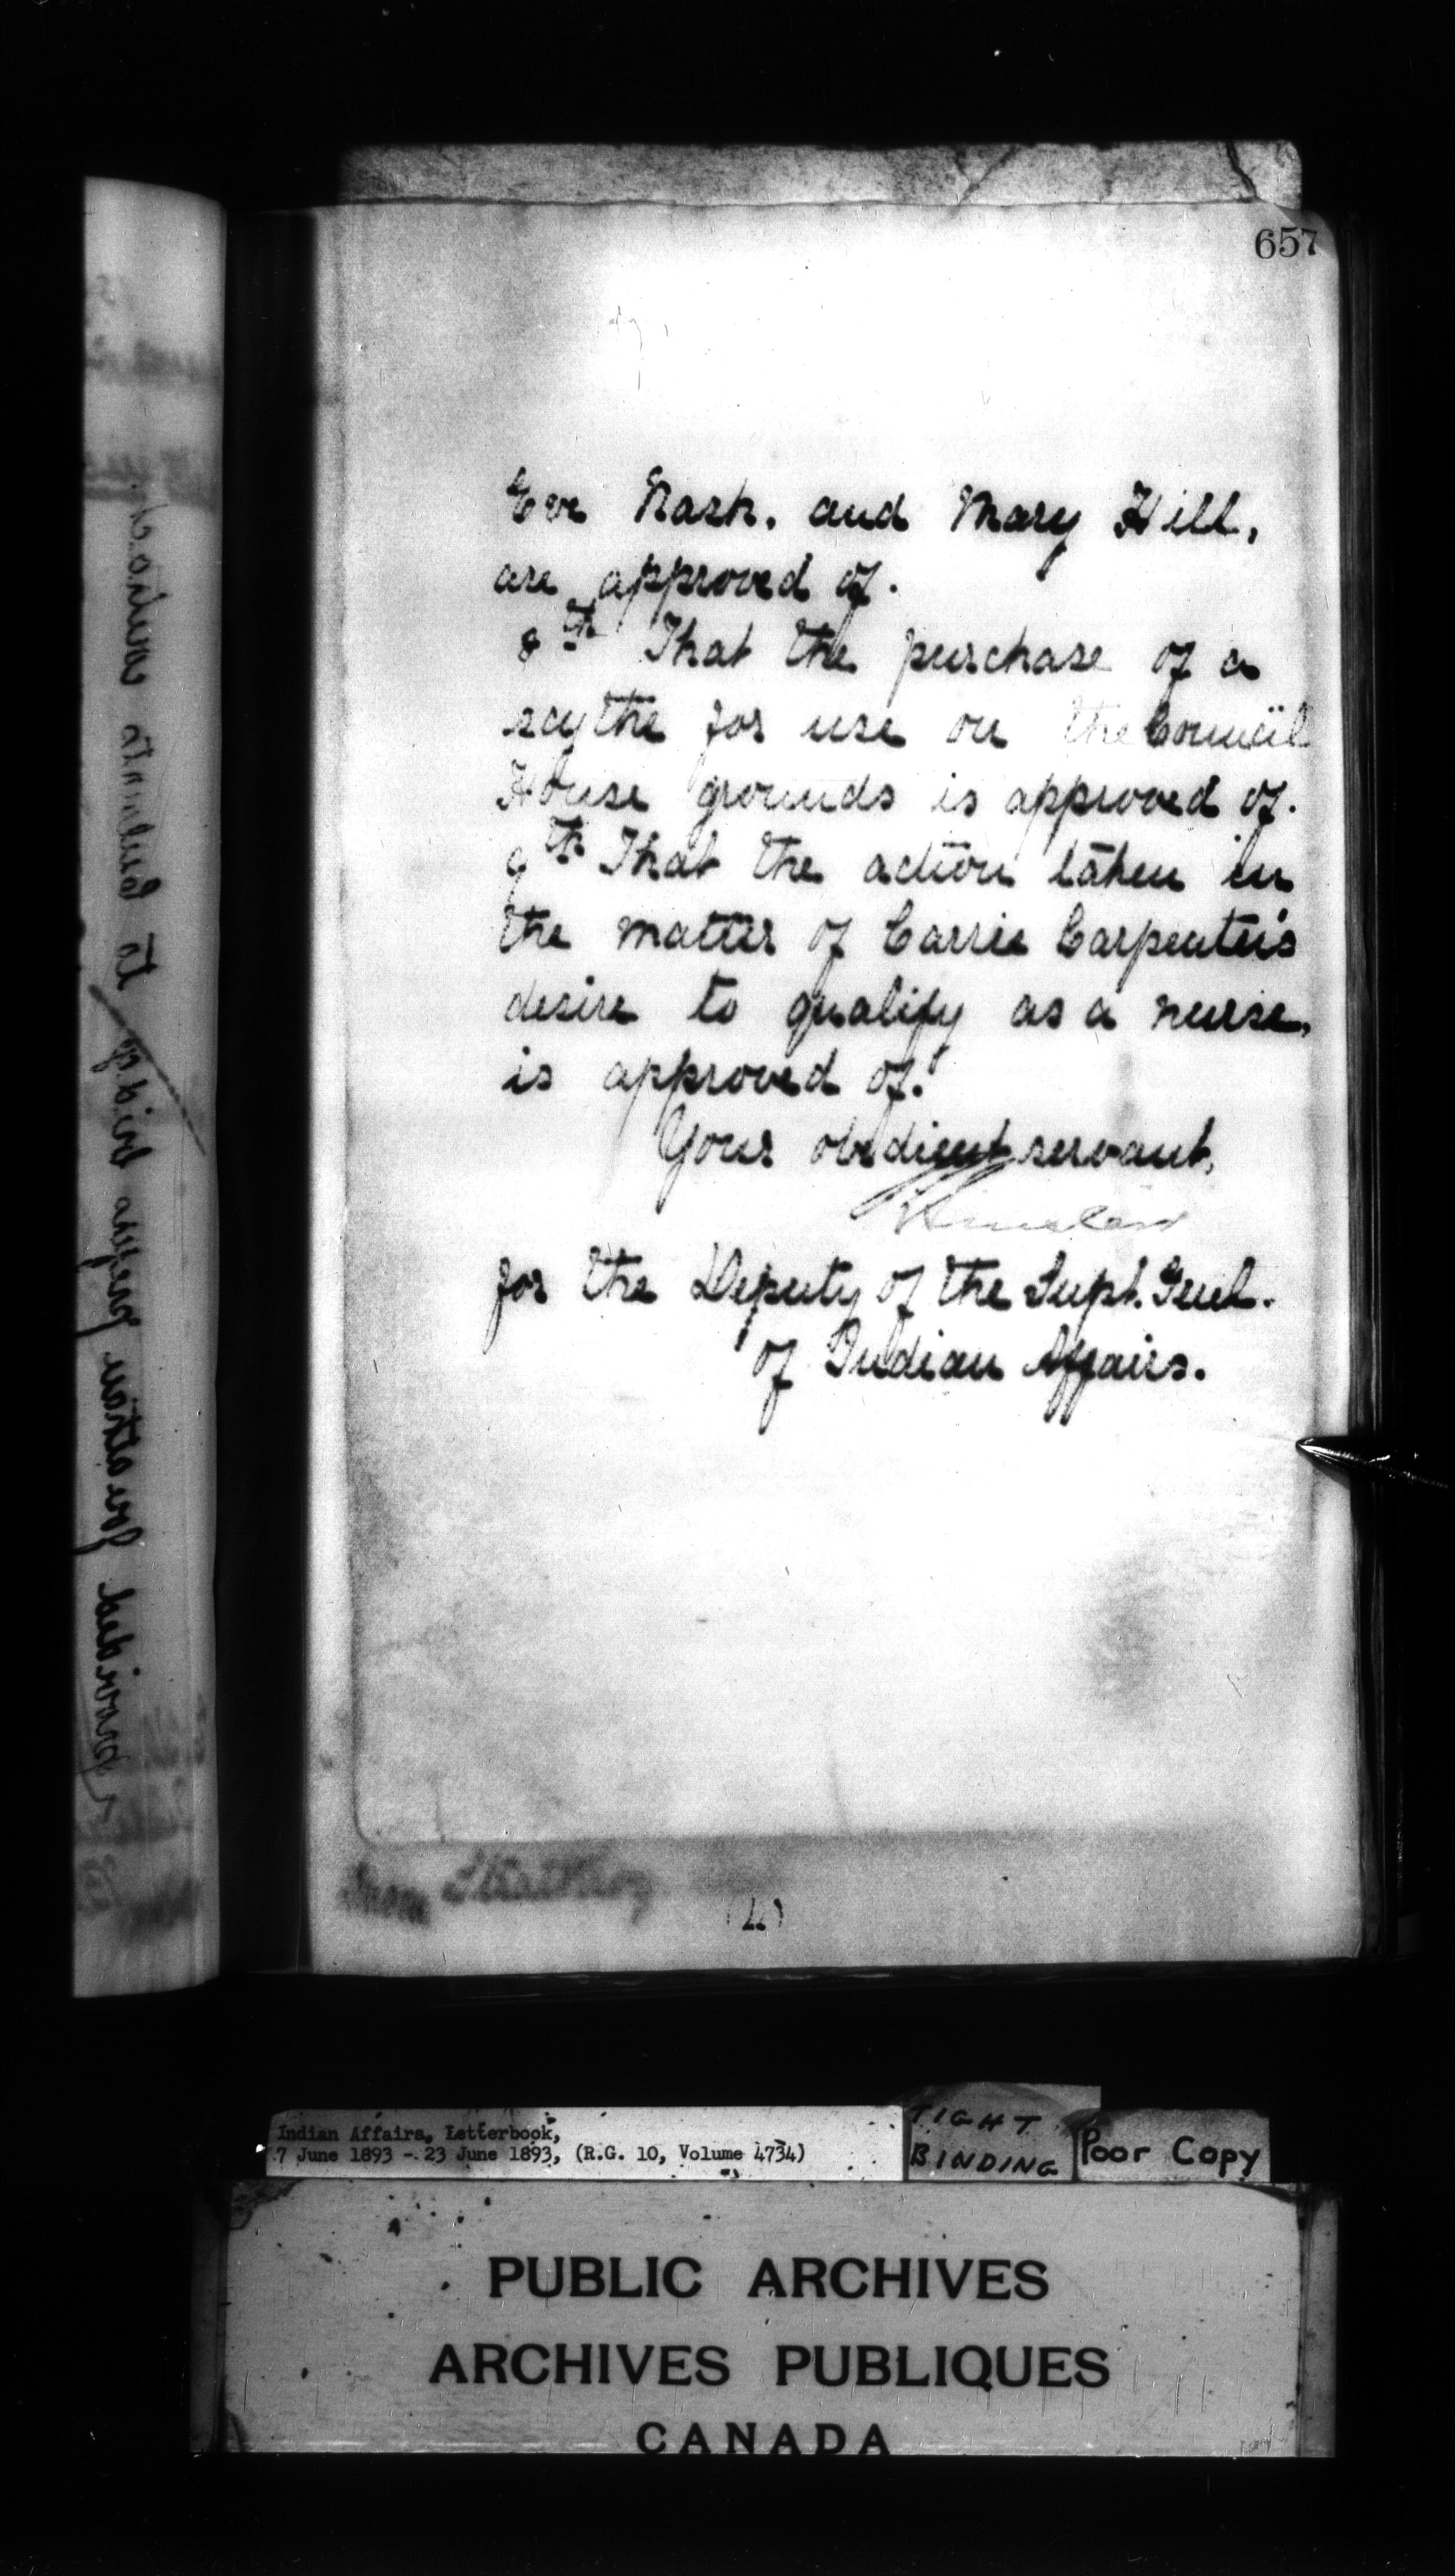 657
Eve Nash. and Mary Hill,
are approved of.
8th That the purchase of a
scythe for use on the Council
House grounds is approved of.
9th That the action taken in
the matter of Carrie Carpenter's
desire to qualify as a nurse,
is approved of.
Your obedient servant,
for the Deputy of the Supt. Genl.
of Indian Affairs.
Indian Affairs, Letterbook,
7 June 1893 - 23 June 1893, (R.G. 10, Volume 4734)
TIGHT
BINDING
Poor Copy
PUBLIC ARCHIVES
ARCHIVES PUBLIQUES
CANADA